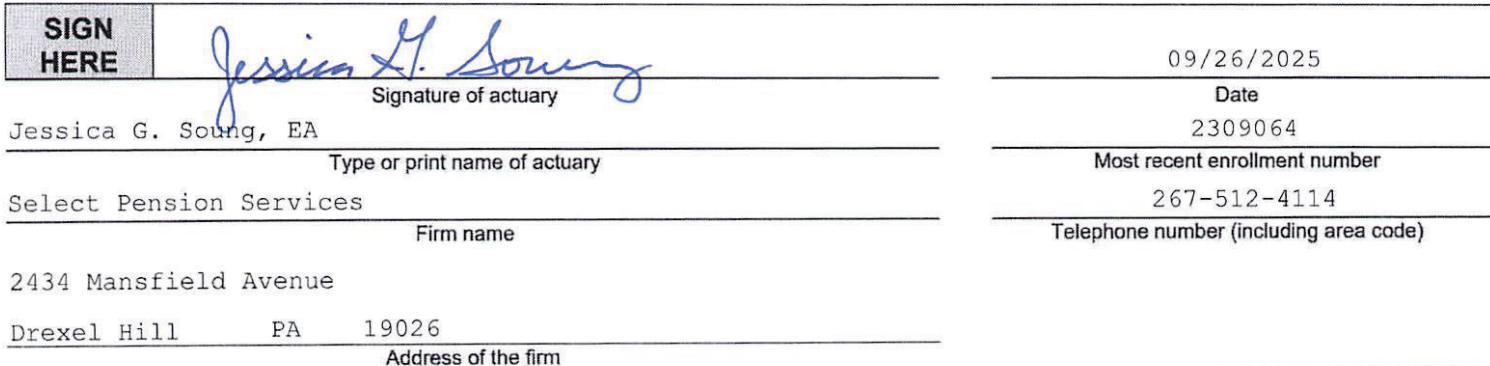 SIGN
HERE
Jessica G. Soung
09/26/2025
Signature of actuary
Date
Jessica G. Soung, EA
2309064
Type or print name of actuary
Most recent enrollment number
Select Pension Services
267-512-4114
Firm name
Telephone number (including area code)
2434 Mansfield Avenue
Drexel Hill PA 19026
Address of the firm